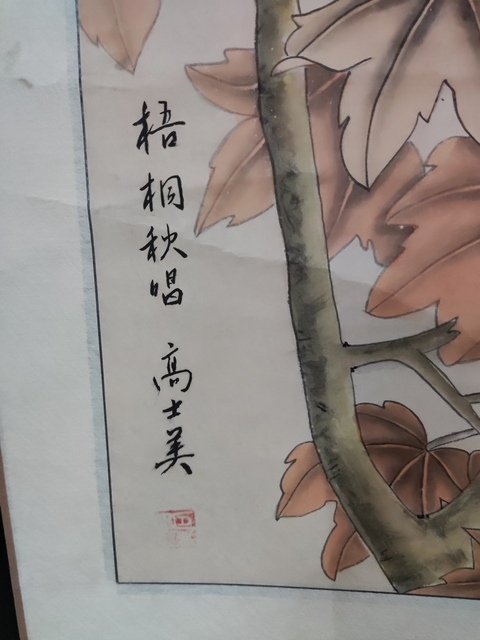 梧桐秋唱 高士美